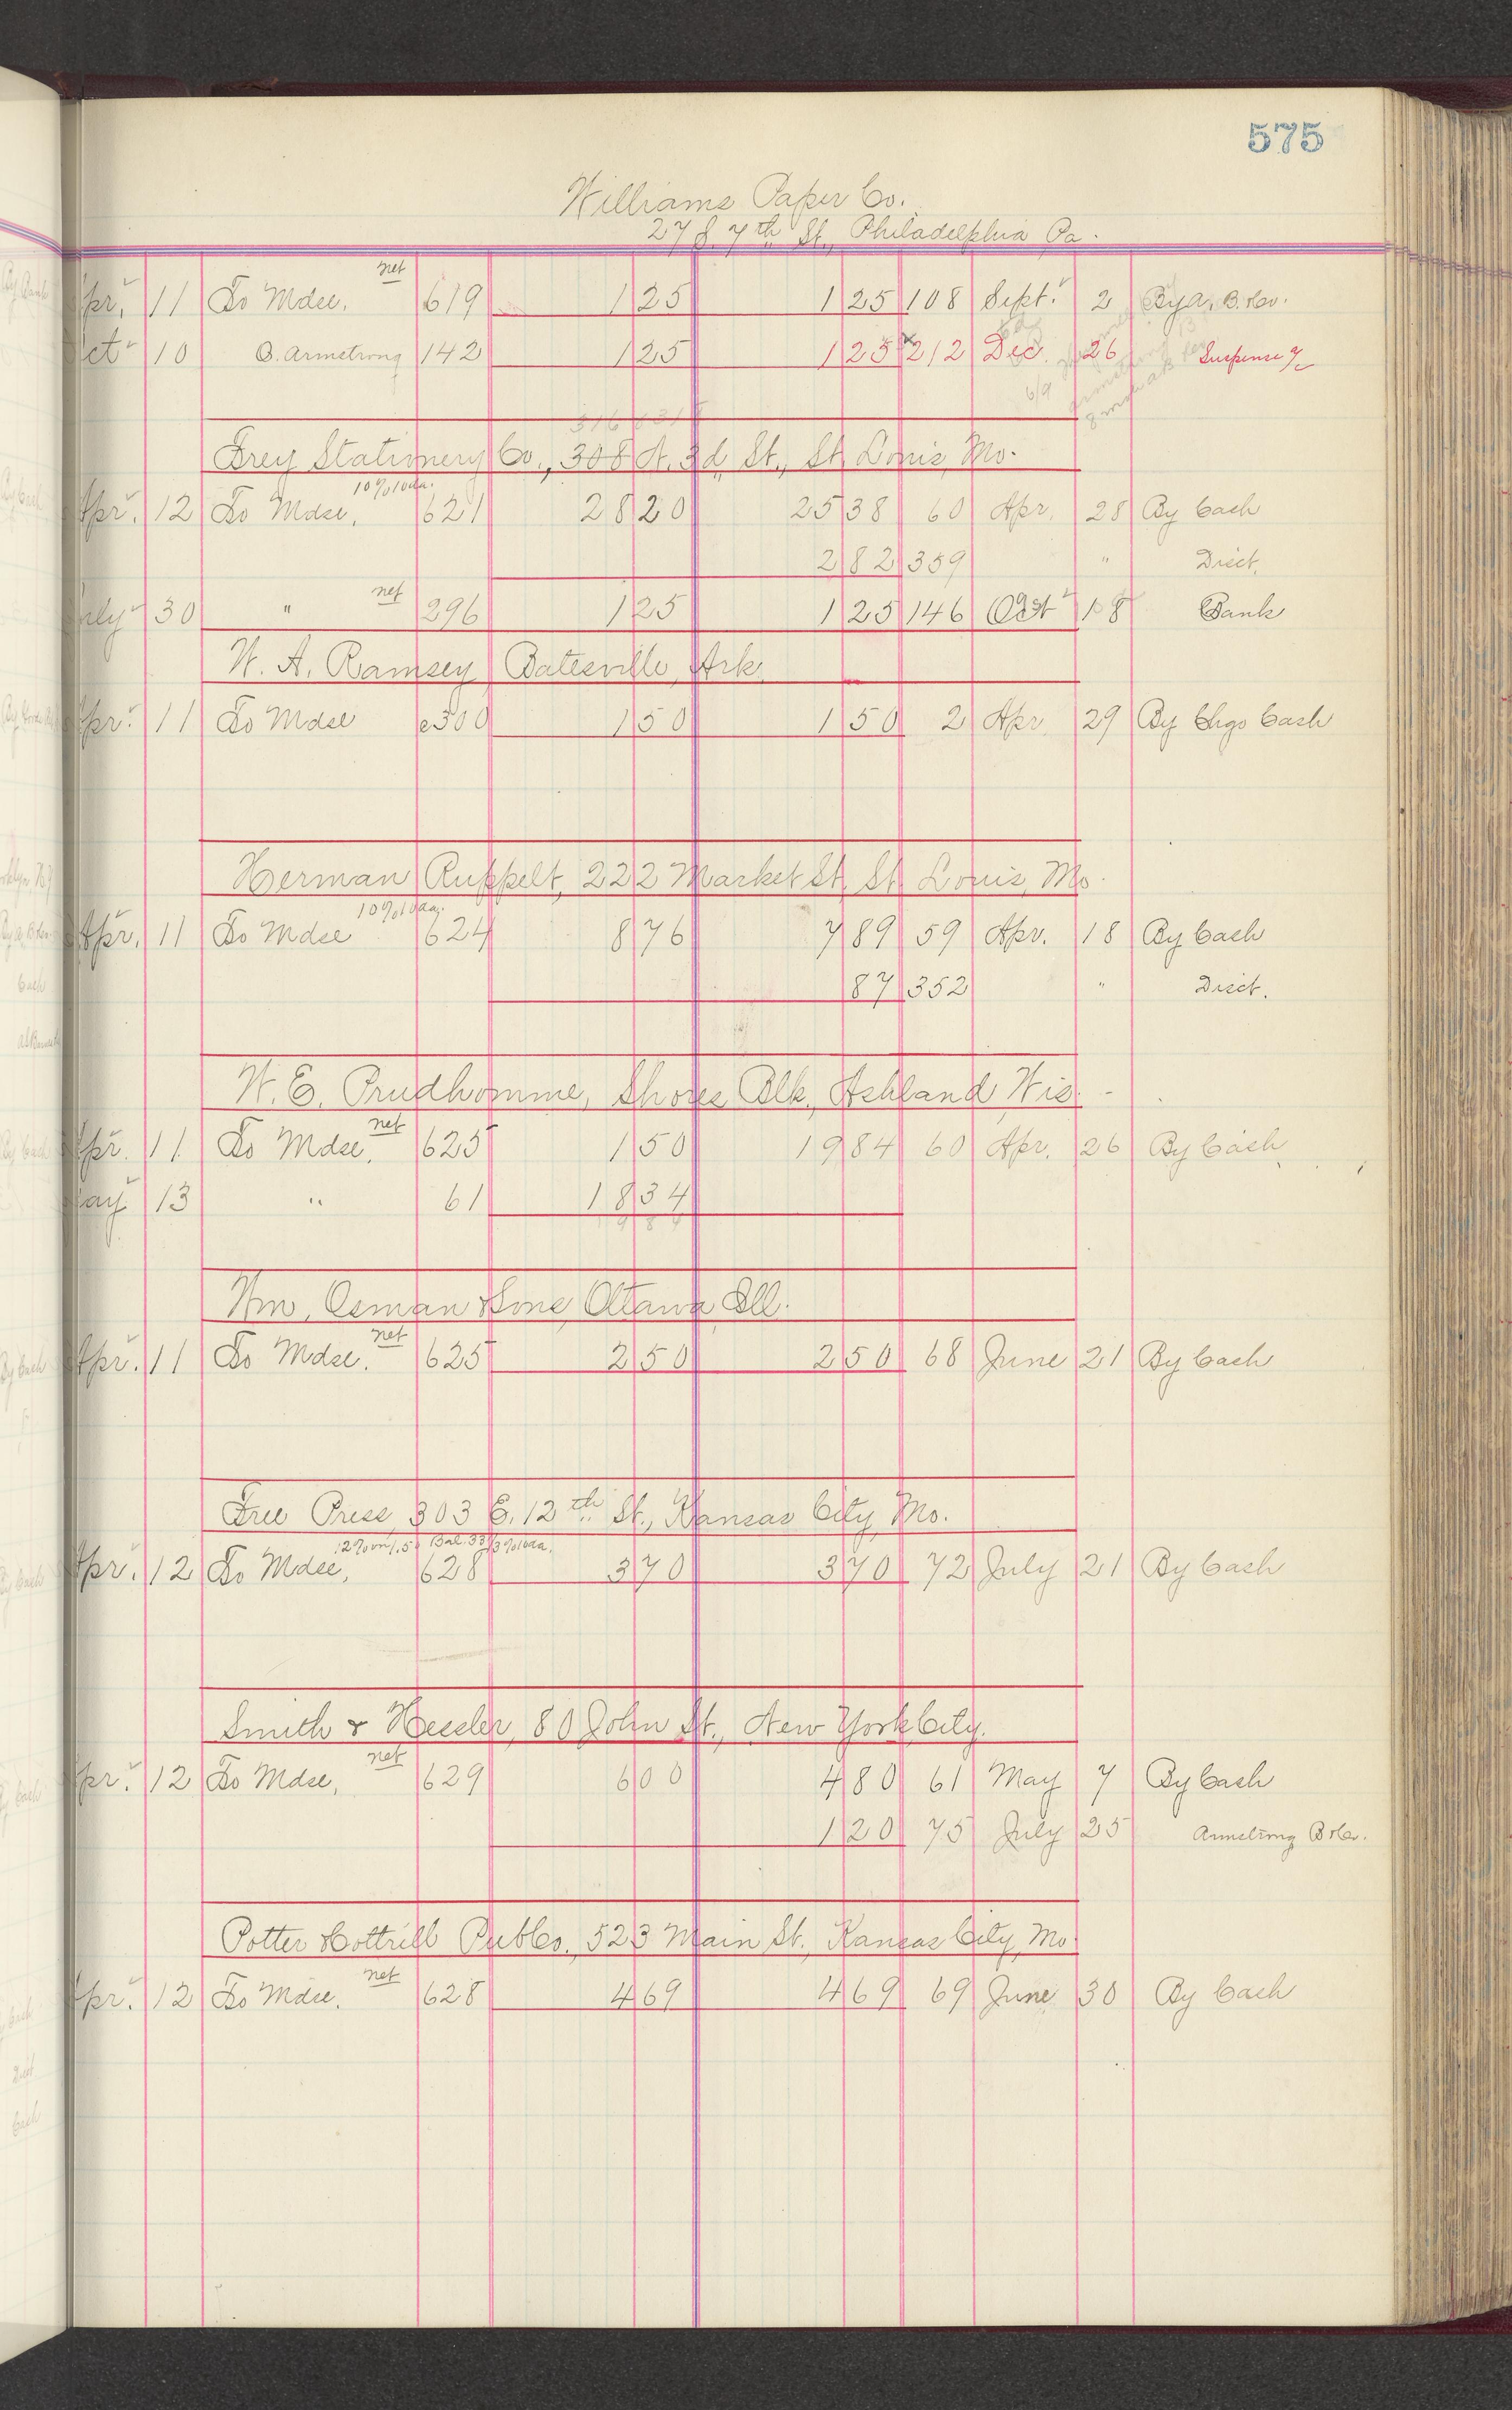 575
Williams Paper Co.
27 S. 7th St., Philadelphia Pa.
Apr. 11 To Mdse. net 619 1 25 1 25 108 Sept. 2 By A. B. & Co.
Oct 10 B. Armstrong 142 1 25 1 25 212 Dec. 26 Suspense a/c
Frey Stationery Co., 308 N. 3d St., St. Louis, Mo.
Apr. 12 To Mdse. 10% 10 da. 621 28 20 25 38 60 Apr. 28 By Cash
2 82 359 " Disct.
July 30 " net 296 1 25 1 25 146 Oct 18 Bank
W. A. Ramsey, Batesville, Ark.
Apr. 11 To Mdse e300 1 50 1 50 2 Apr 29 By Chgo Cash
Herman Ruppelt, 222 Market St, St. Louis, Mo.
Apr. 11 To Mdse 10% 10 da. 624 8 76 7 89 59 Apr. 18 By Cash
87 352 " Disct.
W. E. Prudhomme, Shores Blk., Ashland Wis.
Apr. 11 To Mdse. net 625 1 50 19 84 60 Apr. 26 By Cash
May 13 " 61 18 34
19 84
Wm. Osman & Sons, Ottawa, Ill.
Apr. 11 To Mdse. net 625 2 50 2 50 68 June 21 By Cash
Free Press, 303 E. 12th St., Kansas City, Mo.
Apr. 12 To Mdse. 12% on 1.50 Bal. 33 1/3% 10 da. 628 3 70 3 70 72 July 21 By Cash
Smith & Hessler, 80 John St., New York City.
Apr. 12 To Mdse. net 629 6 00 4 80 61 May 7 By Cash
1 20 75 July 25 Armstrong B & Co.
Potter Cottrill Pub Co., 523 Main St., Kansas City, Mo.
Apr. 12 To Mdse. net 628 4 69 4 69 69 June 30 By Cash